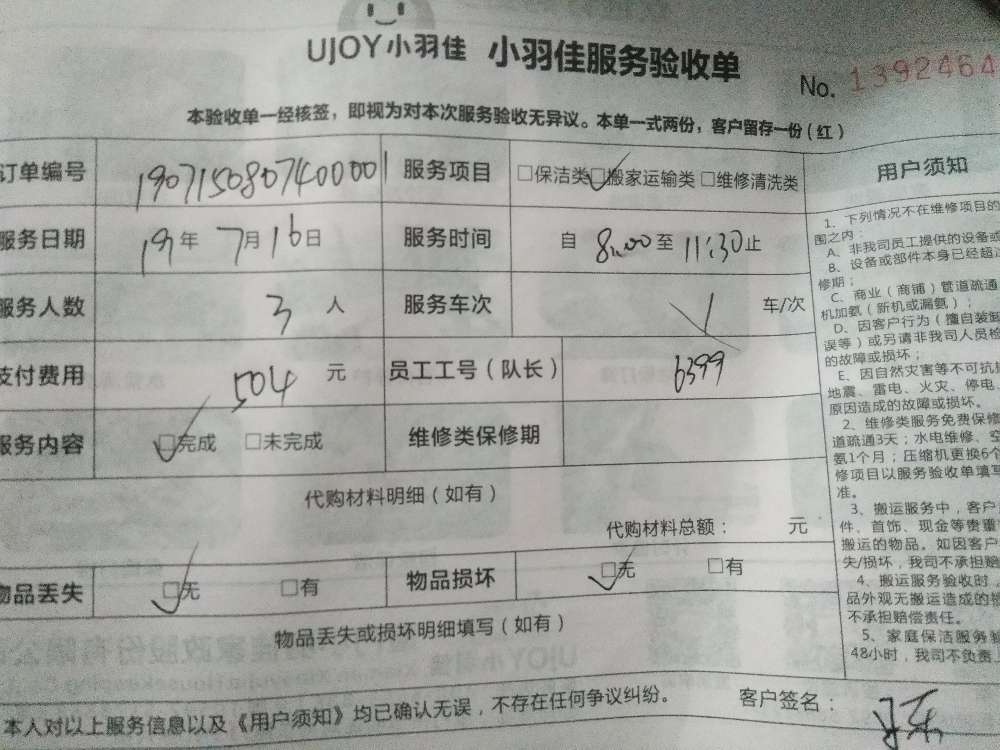 UJOY小羽佳 小羽佳服务验收单
No. 1392464
本验收单一经核签，即视为对本次服务验收无异议。本单一式两份，客户留存一份（红）
订单编号 190715080740001 服务项目 □保洁类 □搬家运输类 □维修清洗类
服务日期 19年 7月16日 服务时间 自 8:00至 11:30止
服务人数 3 人 服务车次 1 车/次
支付费用 504 元 员工工号（队长） 6399
服务内容 □完成 □未完成 维修类保修期
代购材料明细（如有）
代购材料总额： 元
物品丢失 □无 □有 物品损坏 □无 □有
物品丢失或损坏明细填写（如有）
本人对以上服务信息以及《用户须知》均已确认无误，不存在任何争议纠纷。 客户签名：
用户须知
1、下列情况不在维修项目的
围之内：
A、非我司员工提供的设备或
B、设备或部件本身已经超过
修期；
C、商业（商铺）管道疏通
机加氨（新机或漏氨）；
D、因客户行为（擅自装卸
误等）或另请非我司人员检
的故障或损坏；
E、因自然灾害等不可抗拒
地震、雷电、火灾、停电
原因造成的故障或损坏。
2、维修类服务免费保修
道疏通3天；水电维修、空
氨1个月；压缩机更换6个
修项目以服务验收单填写
准。
3、搬运服务中，客户
件、首饰、现金等贵重
搬运的物品。如因客户
失/损坏，我司不承担赔
4、搬运服务验收时，
品外观无搬运造成的
不承担赔偿责任。
5、家庭保洁服务验
48小时，我司不负责